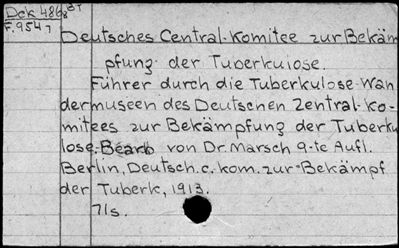 Dek 4868 BT
F.9547
Deutsches Central-Komitee zur Bekäm
pfung der Tuberkulose.
Führer durch die Tuberkulose-Wan
dermuseen des Deutschen Zentral-Ko-
mitees zur Bekämpfung der Tuberku
lose. Bearb von Dr. Marsch 9-te Aufl.
Berlin, Deutsch. c. kom. zur Bekämpf
der Tuberk, 1913.
71s.